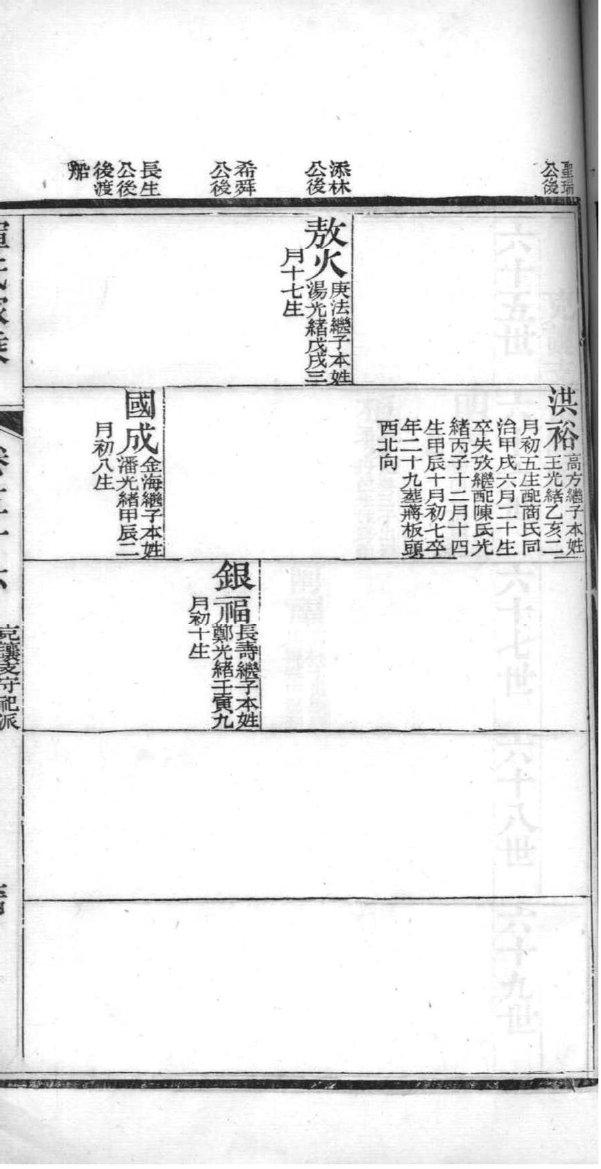 聖瑞
公後
添林
公後
希舜
公後
長生
公後
後渡
船
敖火
庚法繼子本姓
湯光緒戊戌三
月十七生
洪裕
高方繼子本姓
王光緒乙亥二
月初五生配商氏同
治甲戌六月二十生
卒失攷繼配陳氏光
緒丙子十二月十四
生甲辰十月初七卒
年二十九葬蔣板頭
西北向
國成
金海繼子本姓
潘光緒甲辰二
月初八生
銀福
長壽繼子本姓
鄭光緒壬寅九
月初十生
克讓支守祀派